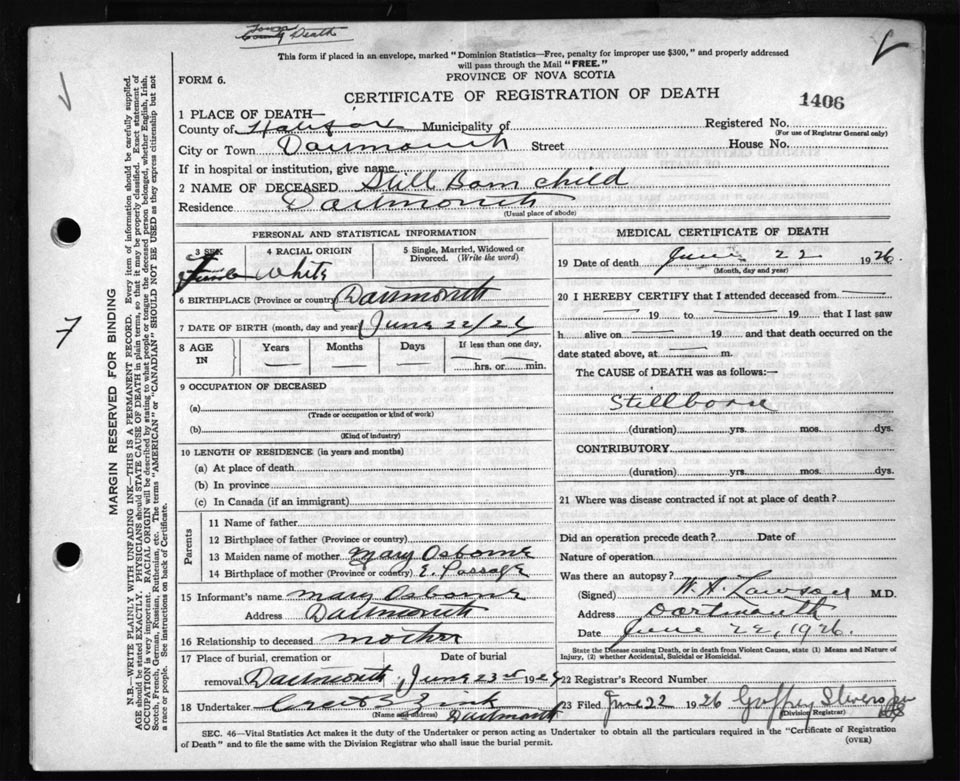 Town
County Death
This form if placed in an envelope, marked "Dominion Statistics—Free, penalty for improper use $300," and properly addressed
will pass through the Mail "FREE."
FORM 6.
PROVINCE OF NOVA SCOTIA
CERTIFICATE OF REGISTRATION OF DEATH
1406
1 PLACE OF DEATH—
County of Halifax Municipality of Registered No.
(For use of Registrar General only)
City or Town Dartmouth Street House No.
If in hospital or institution, give name
2 NAME OF DECEASED Still Born child
Residence Dartmouth
(Usual place of abode)
PERSONAL AND STATISTICAL INFORMATION
3 SEX
4 RACIAL ORIGIN
White
5 Single, Married, Widowed or
Divorced. (Write the word)
6 BIRTHPLACE (Province or country) Dartmouth
7 DATE OF BIRTH (month, day and year) June 22/26
8 AGE
IN
Years
Months
Days
If less than one day,
hrs. or min.
9 OCCUPATION OF DECEASED
(a)
(Trade or occupation or kind of work)
(b)
(Kind of industry)
10 LENGTH OF RESIDENCE (in years and months)
(a) At place of death
(b) In province
(c) In Canada (if an immigrant)
Parents
11 Name of father
12 Birthplace of father (Province or country)
13 Maiden name of mother Mary Osborne
14 Birthplace of mother (Province or country) E. Passage
15 Informant's name Mary Osborne
Address Dartmouth
16 Relationship to deceased mother
17 Place of burial, cremation or
Date of burial
removal Dartmouth June 23rd 1926
18 Undertaker Zink
(Name and address) Dartmouth
MEDICAL CERTIFICATE OF DEATH
19 Date of death June 22 1926
(Month, day and year)
20 I HEREBY CERTIFY that I attended deceased from
19 to 19 that I last saw
h alive on 19 and that death occurred on the
date stated above, at m.
The CAUSE of DEATH was as follows:—
Stillborn
(duration) yrs. mos. dys.
CONTRIBUTORY
(duration) yrs. mos. dys.
21 Where was disease contracted if not at place of death?
Did an operation precede death? Date of
Nature of operation
Was there an autopsy?
(Signed) W. A. Lawson M.D.
Address Dartmouth
Date June 22, 1926.
State the Disease causing Death, or in death from Violent Causes, state (1) Means and Nature of
Injury, (2) whether Accidental, Suicidal or Homicidal.
22 Registrar's Record Number
23 Filed June 22 1926
(Division Registrar)
SEC. 46—Vital Statistics Act makes it the duty of the Undertaker or person acting as Undertaker to obtain all the particulars required in the "Certificate of Registration
of Death" and to file the same with the Division Registrar who shall issue the burial permit.
(OVER)
7
MARGIN RESERVED FOR BINDING
N.B.—WRITE PLAINLY WITH UNFADING INK—THIS IS A PERMANENT RECORD. Every item of information should be carefully supplied.
AGE should be stated EXACTLY. PHYSICIANS should STATE CAUSE OF DEATH in plain terms, so that it may be properly classified. Exact statement of
OCCUPATION is very important. RACIAL ORIGIN will be described by stating to what people or tongue the deceased person belonged, whether English, Irish,
Scotch, French, German, Russian, Ruthenian, etc. The terms "AMERICAN" or "CANADIAN" SHOULD NOT BE USED as they express citizenship but not
a race or people. See instructions on back of Certificate.